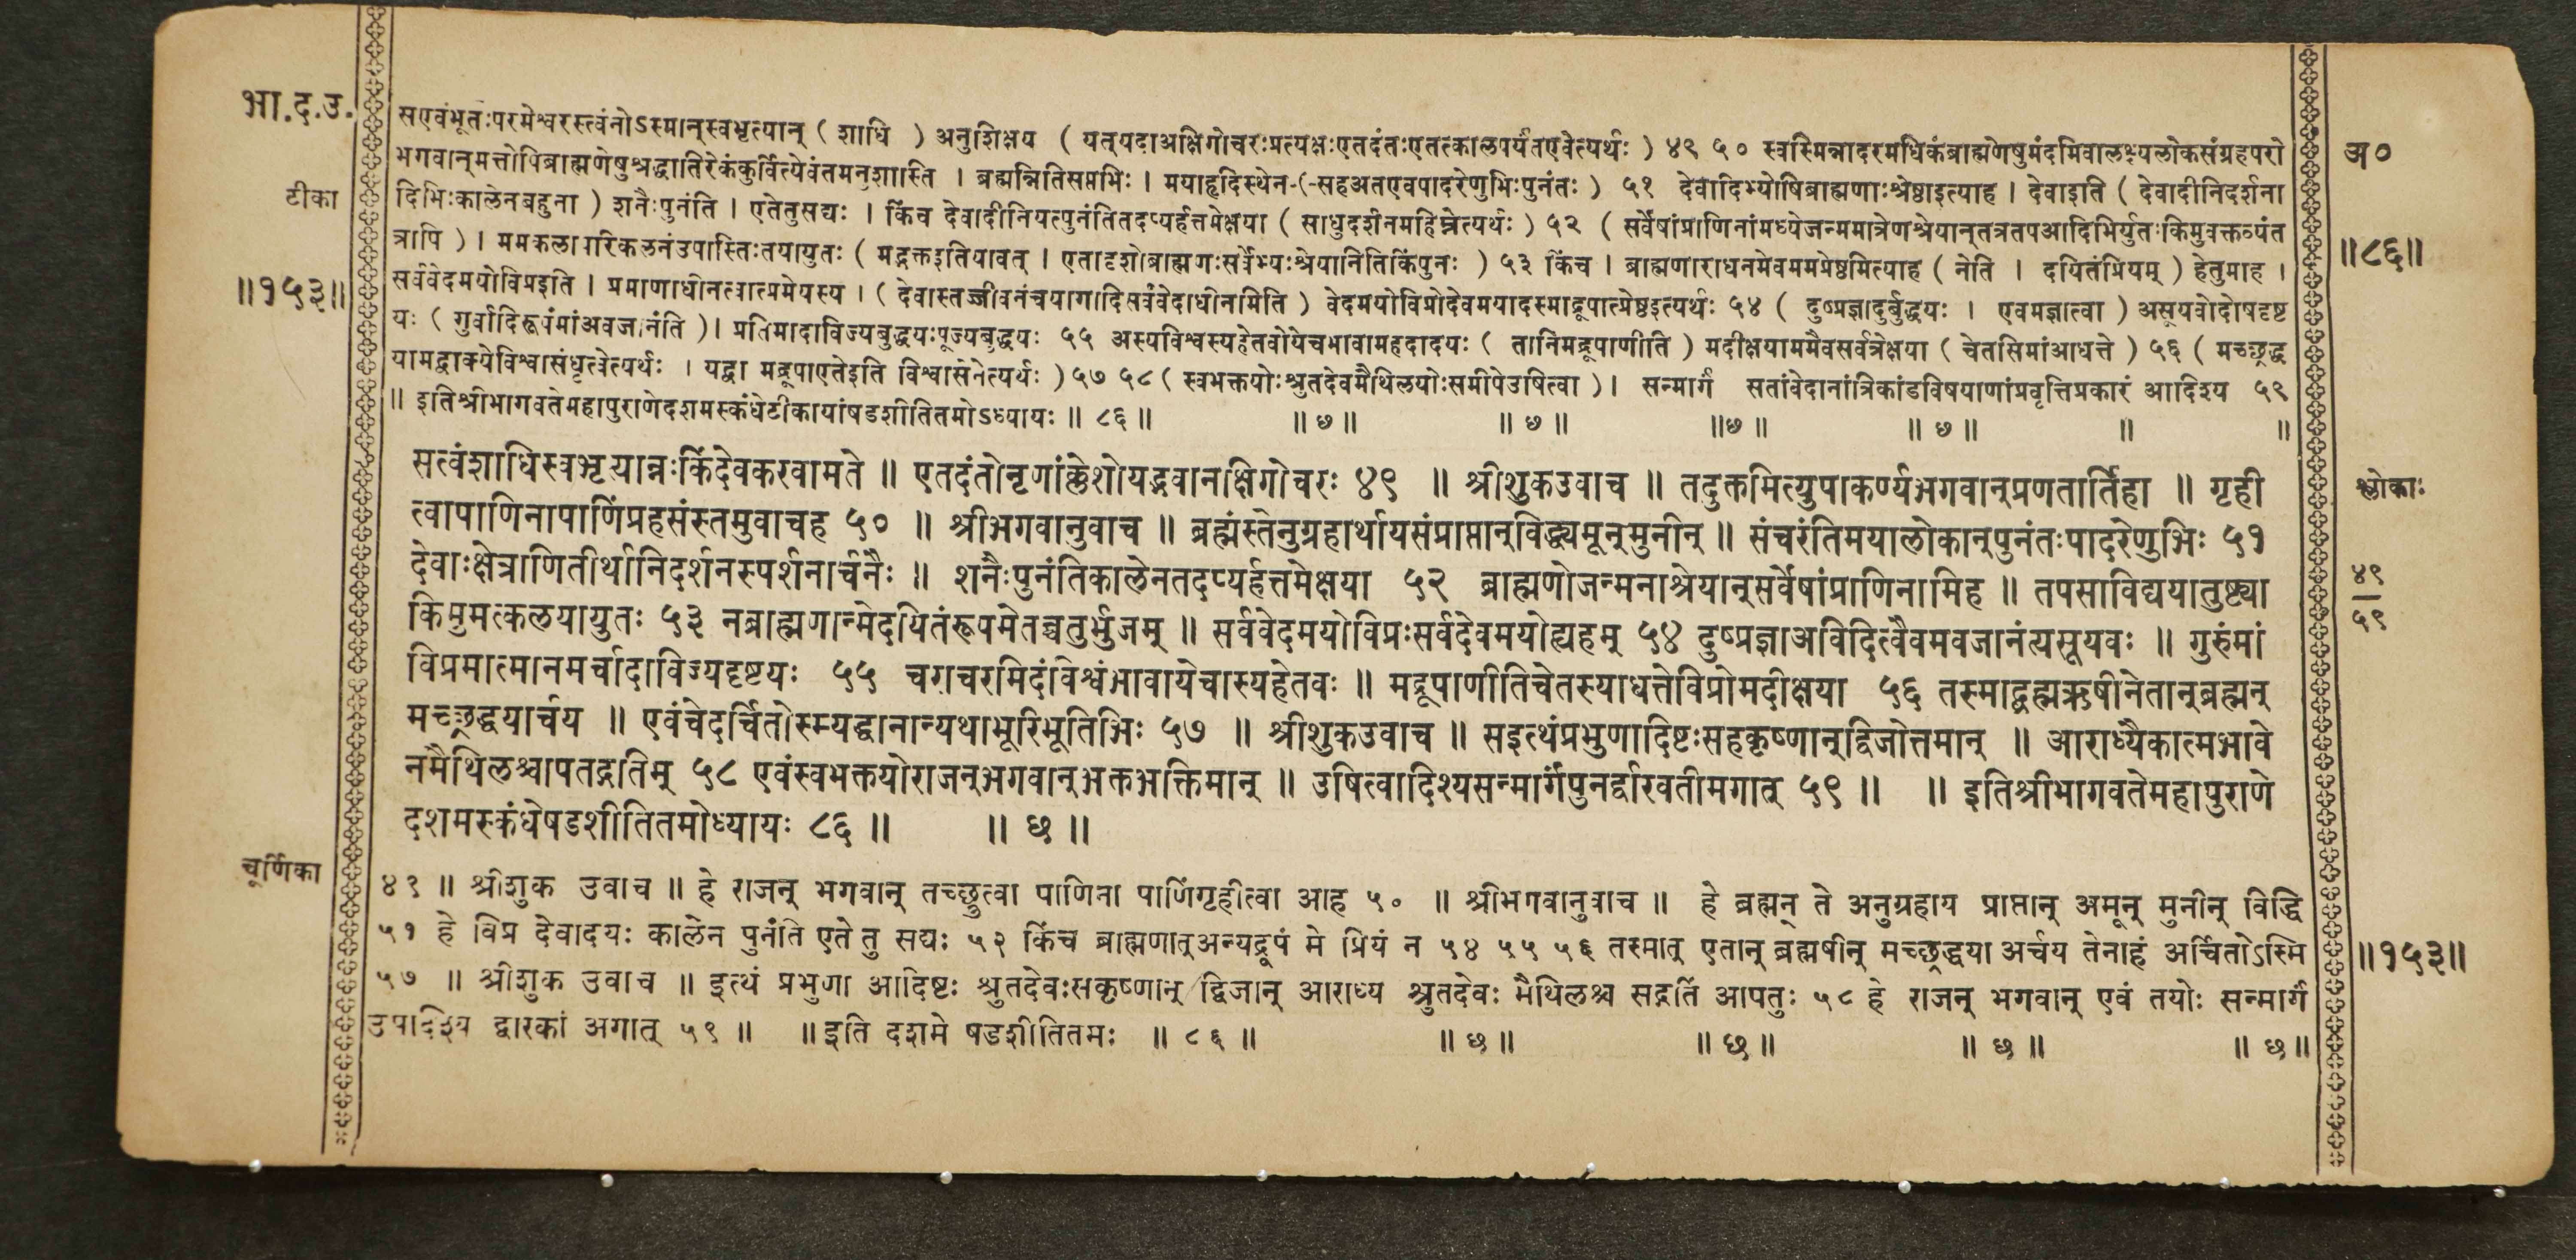 भा.द.उ.
टीका
॥१५३॥
सएवंभूतःपरमेश्वरस्त्वंनोऽस्मान्स्वभृत्यान् ( शाधि ) अनुशिक्षय ( यत्यदाअक्षिगोचरःप्रत्यक्षःएतदंतःएतत्कालपर्यंतएवेत्यर्थः ) ४९ ५० स्वस्मिन्नादरमधिकंब्राह्मणेषुमंदमिवालक्ष्यलोकसंग्रहपरो
भगवान्मत्तोपिब्राह्मणेषुश्रद्धातिरेकंकुर्वित्येवंतमनुशास्ति । ब्रह्मन्नितिसप्तभिः । मयाहृदिस्थेन-(-सहअतएवपादरेणुभिःपुनंतः ) ५१ देवादिभ्योषिब्राह्मणाःश्रेष्ठाइत्याह । देवाइति ( देवादीनिदर्शना
दिभिःकालेनबहुना ) शनैःपुनंति । एतेतुसद्यः । किंच देवादीनियत्पुनंतितदप्यर्हत्तमेक्षया ( साधुदर्शनमहिम्नेत्यर्थः ) ५२ ( सर्वेषांप्राणिनांमध्येजन्ममात्रेणश्रेयान्तत्रतपआदिभिर्युतःकिमुवक्तव्यंत
त्रापि ) । ममकलापरिकलनंउपास्तिःतयायुतः ( मद्भक्तइतियावत् । एतादृशोब्राह्मणःसर्वेभ्यःश्रेयानितिकिंपुनः ) ५३ किंच । ब्राह्मणाराधनमेवममप्रेष्ठमित्याह ( नेति । दयितंप्रियम् ) हेतुमाह ।
सर्ववेदमयोविप्रइति । प्रमाणाधीनत्वात्प्रमेयस्य । ( देवास्तज्जीवनंचयागादिसर्ववेदाधीनामिति ) वेदमयोविप्रोदेवमयादस्माद्रूपात्प्रेष्ठइत्यर्थः ५४ ( दुष्प्रज्ञादुर्बुद्धयः । एवमज्ञात्वा ) असूयवोदोषदृष्ट
यः ( गुर्वादिरूपंमांअवजानंति )। प्रतिमादाविज्यबुद्धयःपूज्यबुद्धयः ५५ अस्यविश्वस्यहेतवोयेचभावामहदादयः ( तानिमद्रूपाणीति ) मदीक्षयाममैवसर्वत्रेक्षया ( चेतसिमांआधत्ते ) ५६ ( मच्छ्रद्ध
यामद्वाक्येविश्वासंधृत्वेत्यर्थः । यद्वा मद्रूपाएतेइति विश्वासेनेत्यर्थः ) ५७ ५८ ( स्वभक्तयोःश्रुतदेवमैथिलयोःसमीपेउषित्वा )। सन्मार्गं सतांवेदानांत्रिकांडविषयाणांप्रवृत्तिप्रकारं आदिश्य ५९
॥ इतिश्रीभागवतेमहापुराणेदशमस्कंधेटीकायांषडशीतितमोऽध्यायः ॥ ८६ ॥ ॥ छ ॥ ॥ छ ॥ ॥ छ ॥ ॥ छ ॥ ॥ ॥
अ०
॥८६॥
सत्वंशाधिस्वभृत्यान्नःकिंदेवकरवामते ॥ एतदंतोनृणांक्लेशोयद्भवानक्षिगोचरः ४९ ॥ श्रीशुकउवाच ॥ तदुक्तमित्युपाकर्ण्यभगवान्प्रणतार्तिहा ॥ गृही
त्वापाणिनापाणिंप्रहसंस्तमुवाचह ५० ॥ श्रीभगवानुवाच ॥ ब्रह्मंस्तेनुग्रहार्थायसंप्राप्तान्विद्ध्यमून्मुनीन् ॥ संचरंतिमयालोकान्पुनंतःपादरेणुभिः ५१
देवाःक्षेत्राणितीर्थानिदर्शनस्पर्शनार्चनैः ॥ शनैःपुनंतिकालेनतदप्यर्हत्तमेक्षया ५२ ब्राह्मणोजन्मनाश्रेयान्सर्वेषांप्राणिनामिह ॥ तपसाविद्ययातुष्ट्या
किमुमत्कलयायुतः ५३ नब्राह्मणान्मेदयितंरूपमेतच्चतुर्भुजम् ॥ सर्ववेदमयोविप्रःसर्वदेवमयोह्यहम् ५४ दुष्प्रज्ञाअविदित्वैवमवजानंत्यसूयवः ॥ गुरुंमां
विप्रमात्मानमर्चादाविज्यदृष्टयः ५५ चराचरमिदंविश्वंभावायेचास्यहेतवः ॥ मद्रूपाणीतिचेतस्याधत्तेविप्रोमदीक्षया ५६ तस्माद्ब्रह्मऋषीनेतान्ब्रह्मन्
मच्छ्रद्धयार्चय ॥ एवंचेदर्चितोस्म्यद्धानान्यथाभूरिभूतिभिः ५७ ॥ श्रीशुकउवाच ॥ सइत्थंप्रभुणादिष्टःसहकृष्णान्द्विजोत्तमान् ॥ आराध्यैकात्मभावे
नमैथिलश्चापतद्गतिम् ५८ एवंस्वभक्तयोराजन्भगवान्भक्तभक्तिमान् ॥ उषित्वादिश्यसन्मार्गंपुनर्द्वारवतीमगात् ५९ ॥ ॥ इतिश्रीभागवतेमहापुराणे
दशमस्कंधेषडशीतितमोध्यायः ८६ ॥ ॥ छ ॥
श्लोकाः
४९
५९
चूर्णिका
४९ ॥ श्रीशुक उवाच ॥ हे राजन् भगवान् तच्छ्रुत्वा पाणिना पाणिंगृहीत्वा आह ५० ॥ श्रीभगवानुवाच ॥ हे ब्रह्मन् ते अनुग्रहाय प्राप्तान् अमून् मुनीन् विद्धि
५१ हे विप्र देवादयः कालेन पुनंति एते तु सद्यः ५३ किंच ब्राह्मणात्अन्यद्रूपं मे प्रियं न ५४ ५५ ५६ तस्मात् एतान् ब्रह्मर्षीन् मच्छ्रद्धया अर्चय तेनाहं अर्चितोऽस्मि
५७ ॥ श्रीशुक उवाच ॥ इत्थं प्रभुणा आदिष्टः श्रुतदेवःसकृष्णान् द्विजान् आराध्य श्रुतदेवः मैथिलश्च सद्गतिं आपतुः ५८ हे राजन् भगवान् एवं तयोः सन्मार्गं
उपादिश्य द्वारकां अगात् ५९ ॥ ॥ इति दशमे षडशीतितमः ॥ ८६ ॥ ॥ छ ॥ ॥ छ ॥ ॥ छ ॥ ॥ छ ॥
॥१५३॥